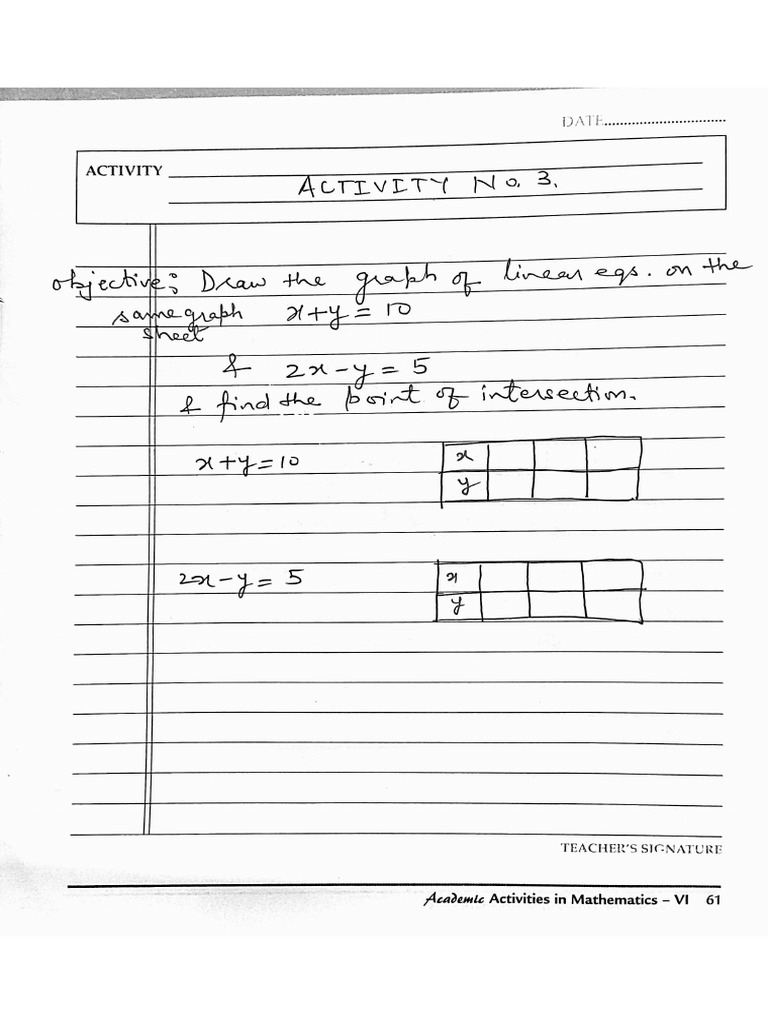 DATE..............................
ACTIVITY
ACTIVITY No. 3.
objective: Draw the graph of linear eqs. on the
same graph sheet x+y = 10
& 2x-y = 5
& find the point of intersection.
x+y=10
x
y
2x-y = 5
x
y
TEACHER'S SIGNATURE
Academic Activities in Mathematics – VI 61